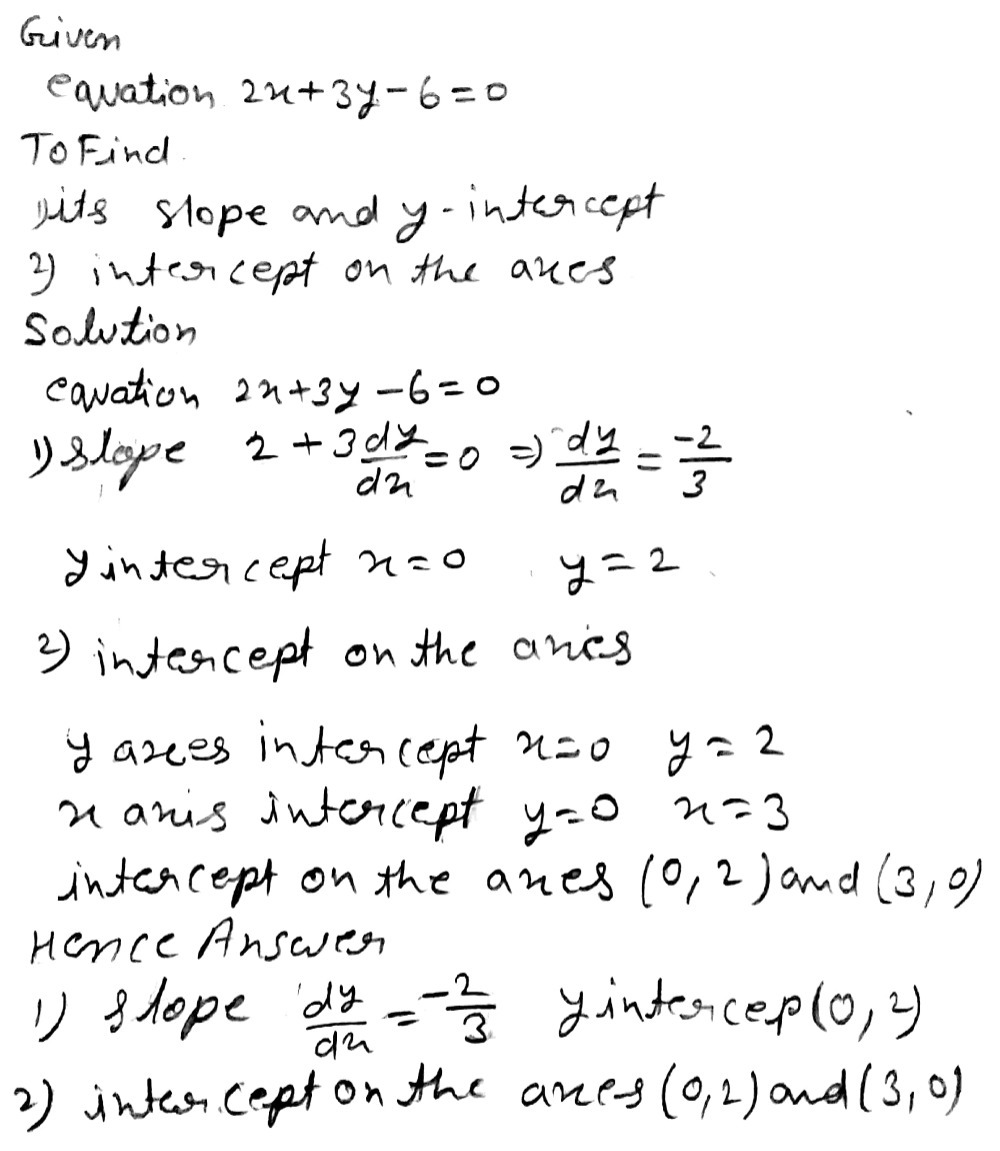 Given
equation 2x+3y-6=0
To Find
1) its slope and y-intercept
2) intercept on the axes
Solution
equation 2x+3y-6=0
1) Slope 2+3dy/dx=0 ⇒ dy/dx = -2/3
y intercept x=0 y=2
2) intercept on the axies
y axces intercept x=0 y=2
x axis intercept y=0 x=3
intercept on the axes (0,2) and (3,0)
Hence Answer
1) slope dy/dx = -2/3 y intercep(0,2)
2) intercept on the axces (0,2) and (3,0)